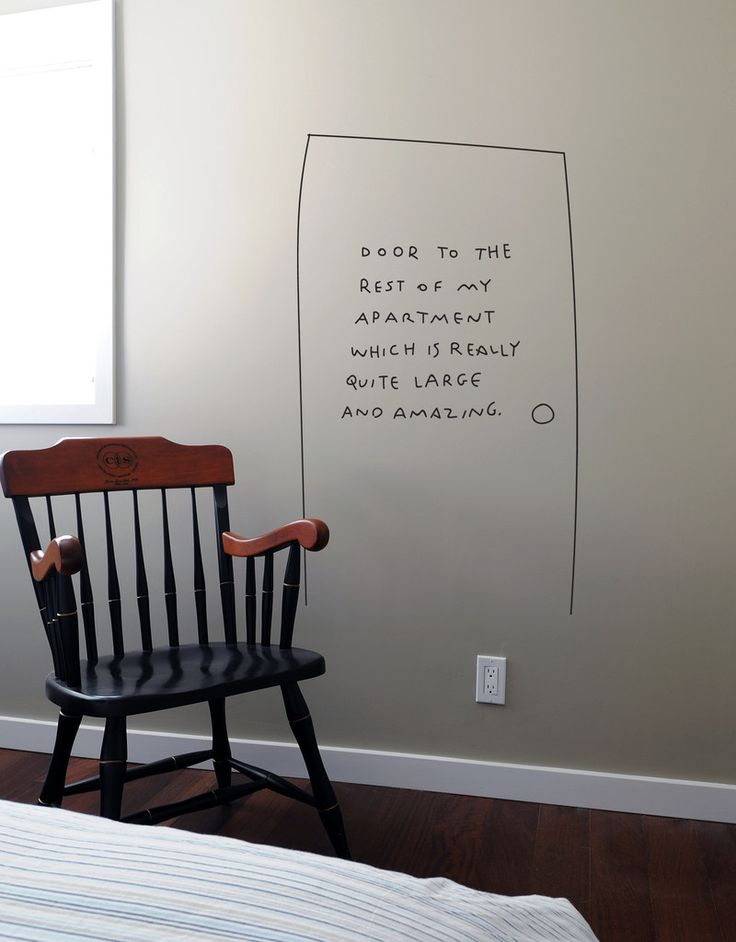 DOOR TO THE
REST OF MY
APARTMENT
WHICH IS REALLY
QUITE LARGE
AND AMAZING.
cis